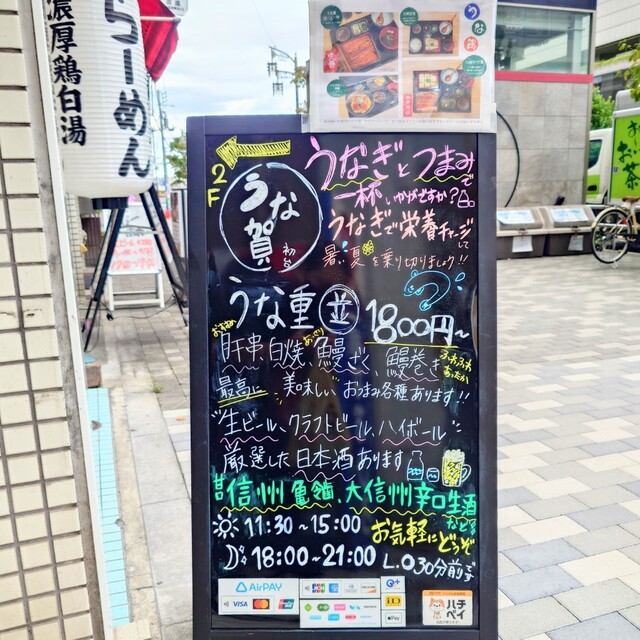 らーめん
濃厚鶏白湯
うな
2F
うな賀
うなぎとつまみで
一杯いかがですか?
うなぎで栄養チャージして
暑い夏を乗り切りましょう!!
うな重 並 1800円~
おすすめ
肝串、白焼、鰻ざく、鰻巻き
あっさり
ふわふわ
あったか
最高に美味しいおつまみ各種あります!!
"生ビール、クラフトビール、ハイボール"
厳選した日本酒あります
信州亀齢、大信州辛口生酒
などなど
11:30~15:00 お気軽にどうぞ
18:00~21:00 L.O30分前まで
AirPAY
VISA
JCB
iD
Pay
ハチペイ
お〜いお茶